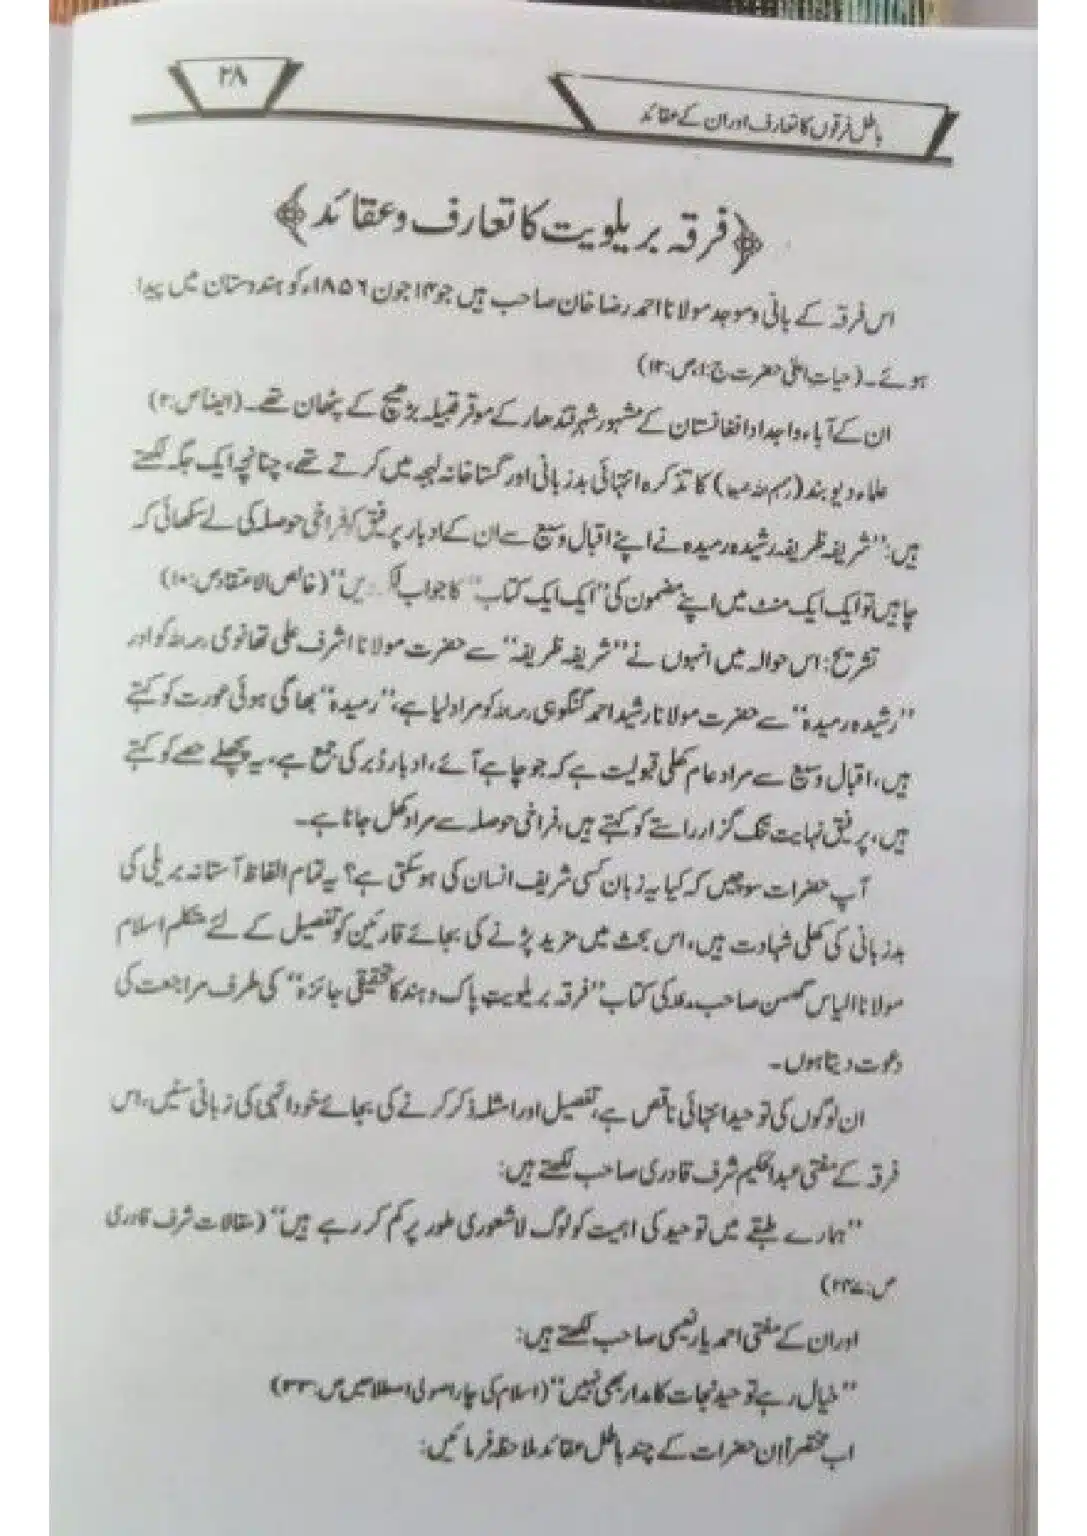 باطل فرقوں کا تعارف اور ان کے عقائد
۲۸
﴿فرقہ بریلویت کا تعارف و عقائد﴾
اس فرقہ کے بانی و موجد مولانا احمد رضا خان صاحب ہیں جو ۱۴ جون ۱۸۵۶ء کو ہندوستان میں پیدا
ہوئے۔ (حیات اعلیٰ حضرت ج:۱، ص:۱۲)
ان کے آباء و اجداد افغانستان کے مشہور شہر قندھار کے موقر قبیلہ بڑھیچ کے پٹھان تھے۔ (ایضاً ص:۲)
علماء دیوبند کا تذکرہ انتہائی بدزبانی اور گستاخانہ لہجہ میں کرتے تھے، چنانچہ ایک جگہ لکھتے
ہیں: ”شریفہ ظریفہ رشیدہ رمیدہ نے اپنے اقبال وسیع سے ان کے ادبار پر فیق کو فراخی حوصلہ کی لے سکھائی کہ
چاہیں تو ایک ایک منٹ میں اپنے مضمون کی ”ایک ایک کتاب“ کا جواب“ (خالص الاعتقاد ص:۱۰)
تشریح: اس حوالہ میں انہوں نے ”شریفہ ظریفہ“ سے حضرت مولانا اشرف علی تھانوی رحمہ اللہ کو اور
”رشیدہ رمیدہ“ سے حضرت مولانا رشید احمد گنگوہی رحمہ اللہ کو مراد لیا ہے، ”رمیدہ“ بھاگی ہوئی عورت کو کہتے
ہیں، اقبال وسیع سے مراد عام کھلی قبولیت ہے کہ جو چاہے آئے، ادبار دُبر کی جمع ہے، یہ پچھلے حصے کو کہتے
ہیں، پر فیق نہایت تنگ گزار راستے کو کہتے ہیں، فراخی حوصلہ سے مراد کھل جانا ہے۔
آپ حضرات سوچیں کہ کیا یہ زبان کسی شریف انسان کی ہو سکتی ہے؟ یہ تمام الفاظ آستانہ بریلی کی
بدزبانی کی کھلی شہادت ہیں، اس بحث میں مزید پڑنے کی بجائے قارئین کو تفصیل کے لئے متکلم اسلام
مولانا الیاس گھمن صاحب مدظلہ کی کتاب ”فرقہ بریلویت پاک و ہند کا تحقیقی جائزہ“ کی طرف مراجعت کی
دعوت دیتا ہوں۔
ان لوگوں کی توحید انتہائی ناقص ہے، تفصیل اور امثلہ ذکر کرنے کی بجائے خود انہی کی زبانی سنیں، اس
فرقہ کے مفتی عبدالحکیم شرف قادری صاحب لکھتے ہیں:
”ہمارے طبقے میں توحید کی اہمیت کو لوگ لاشعوری طور پر کم کر رہے ہیں“ (مقالات شرف قادری
ص:۲۴۷)
اور ان کے مفتی احمد یار نعیمی صاحب لکھتے ہیں:
”خیال رہے توحید نجات کا مدار بھی نہیں“ (اسلام کی چار اصولی اصطلاحیں ص:۳۳)
اب مختصراً ان حضرات کے چند باطل عقائد ملاحظہ فرمائیں: